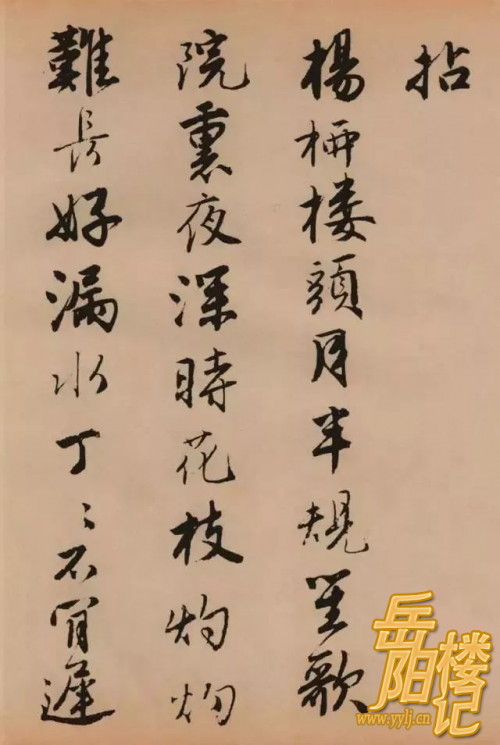 拈
楊柳楼頭月半規笙歌
院裏夜深時花枝灼灼
難長好漏水丁々不肯遲
岳阳楼记
www.yylj.cn